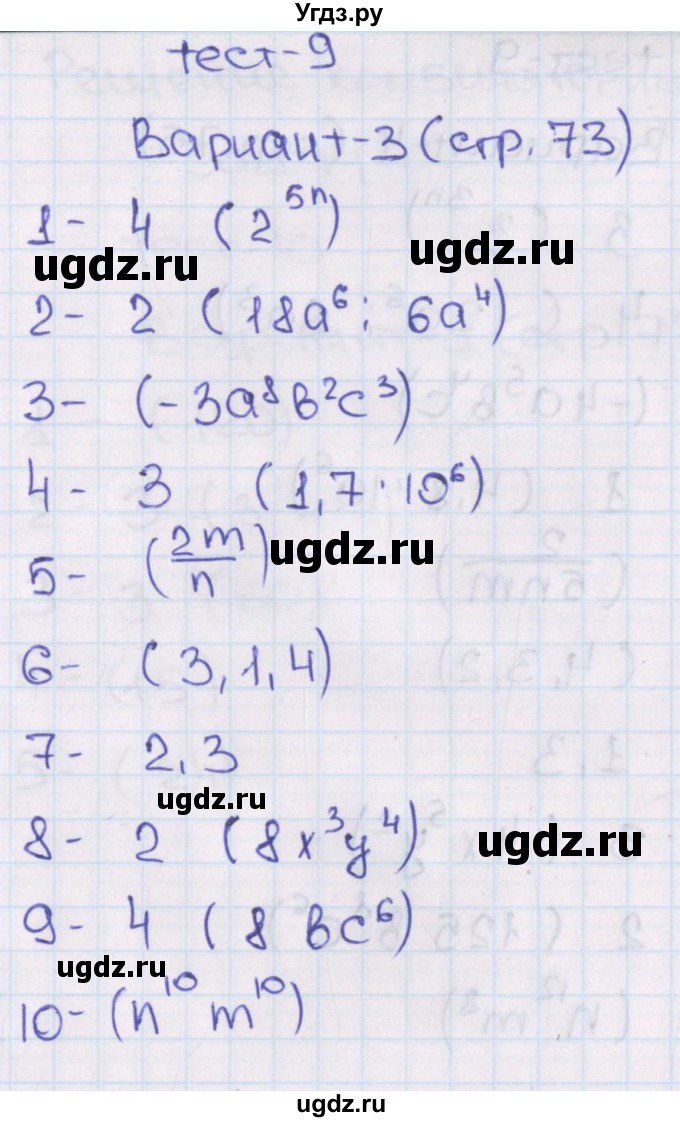 Угдз.ру
тест-9
Вариант-3 (стр. 73)
1- 4 (2^5n)
ugdz.ru ugdz.ru
2- 2 (18a^6 : 6a^4)
3- (-3a^8b^2c^3)
4- 3 (1,7·10^6)
5- (2m/n) ugdz.ru
6- (3,1,4)
7- 2,3
ugdz.ru
8- 2 (8x^3y^4) ugdz.ru
9- 4 (8bc^6)
ugdz.ru
10- (n^10 m^10)
ugdz.ru